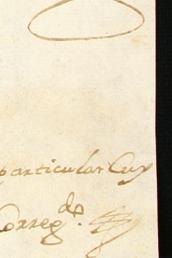 particular Cuy
Correg.do